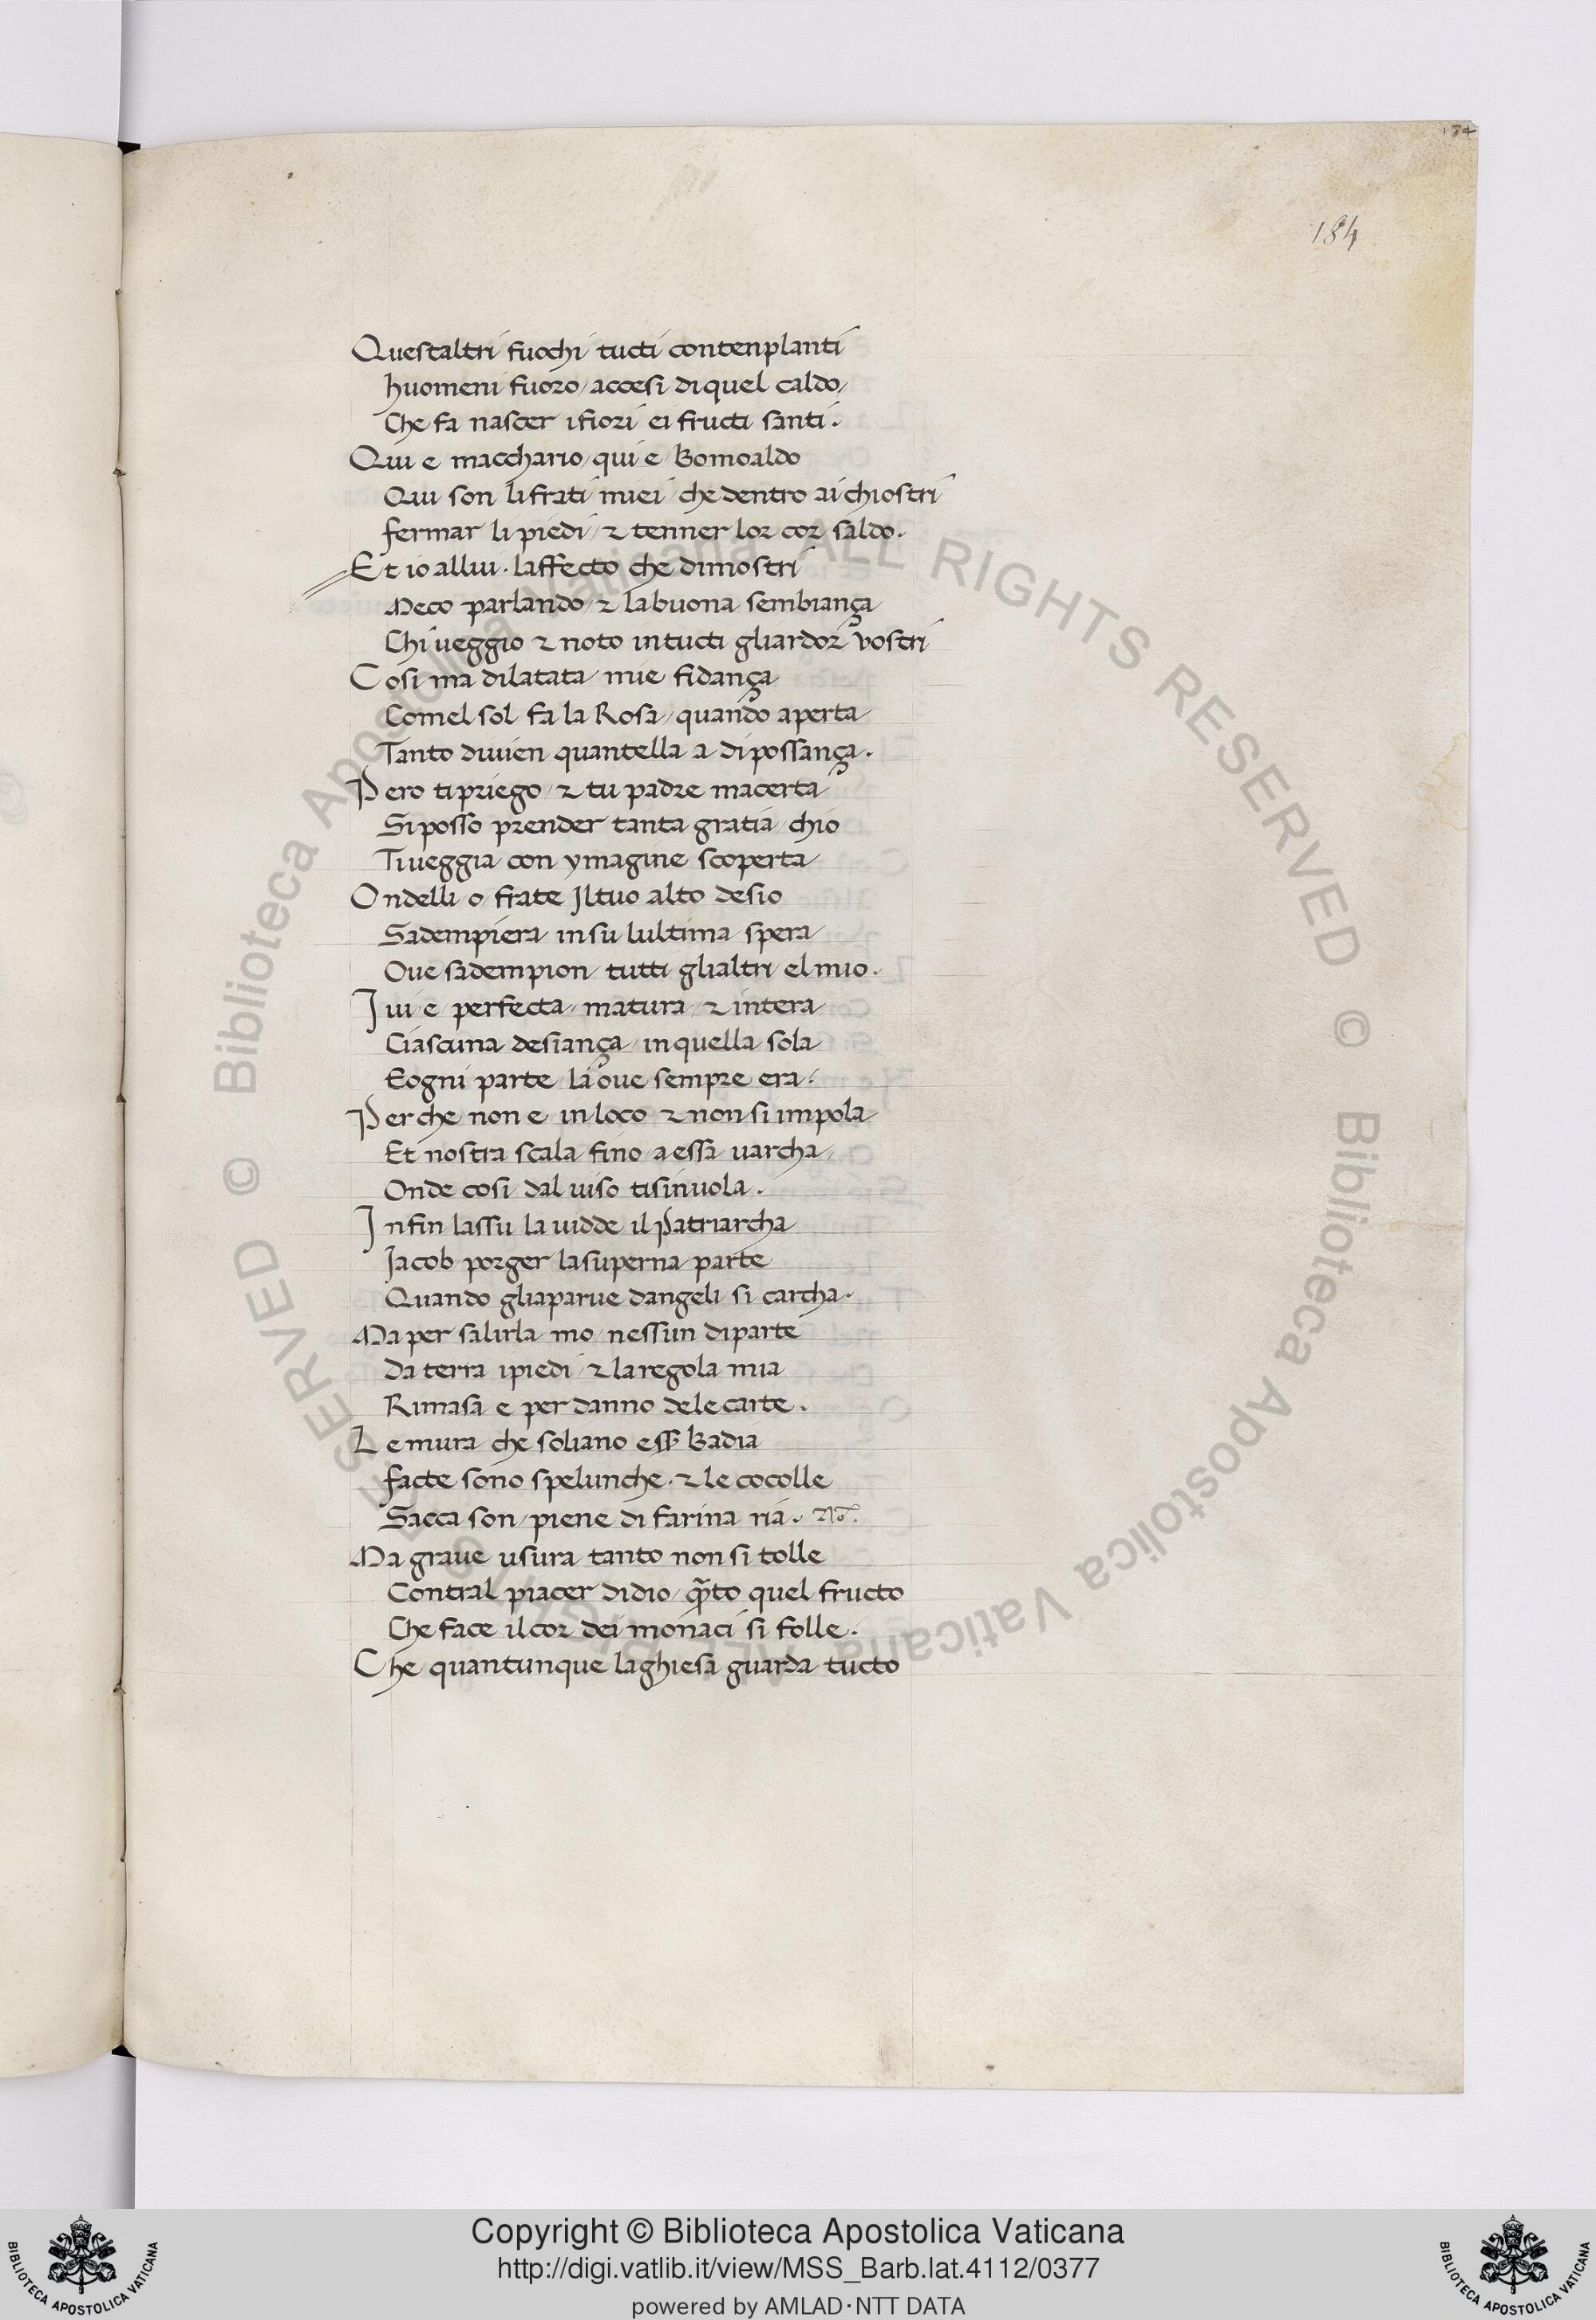 184
184
Questaltri fuochi tucti contenplanti
huomeni fuoro / accesi di quel caldo /
Che fa nascer i fiori ei fructi santi.
Qui e macchario / qui e Romoaldo
Qui son li frati miei / che dentro ai chiostri
fermar li piedi / & tenner lor cor saldo.
Et io allui. laffecto che dimostri
Meco parlando / & la buona sembiança
Chi veggio & noto in tucti gliardor vostri
Cosi ma dilatata mie fidança
Comel sol fa la Rosa / quando aperta
Tanto divien quantella a di possança.
Pero ti priego / & tu padre macerta
Si posso prender tanta gratia / chio
Ti veggia con ymagine scoperta
Ondelli o frate Il tuo alto desio
Sadempiera in su lultima spera
Ove sadempion tutti glialtri el mio.
Ivi e perfecta / matura / & intera
Ciascuna desiança / in quella sola
E ogni parte / la ove sempre era.
Per che non e in loco & non si impola
Et nostra scala fino a essa varcha /
Onde cosi dal viso ti sinvola.
Infin lassu la vidde il Patriarcha
Jacob porger la superna parte
Quando gliaparve dangeli si carcha.
Ma per salirla mo / nessun diparte
Da terra i piedi / & la regola mia
Rimasa e per danno de le carte.
Le mura che soliano ess Badia
facte sono spelunche. & le cocolle
Sacca son piene di farina ria.
Ma grave usura tanto non si tolle
Contral piacer didio / qto quel fructo
Che face il cor dei monaci si folle.
Che quantunque la ghiesa guarda tucto
© Biblioteca Apostolica Vaticana ALL RIGHTS RESERVED © Biblioteca Apostolica Vaticana ALL RIGHTS RESERVED
Copyright © Biblioteca Apostolica Vaticana
http://digi.vatlib.it/view/MSS_Barb.lat.4112/0377
powered by AMLAD·NTT DATA
BIBLIOTECA APOSTOLICA VATICANA
BIBLIOTECA APOSTOLICA VATICANA